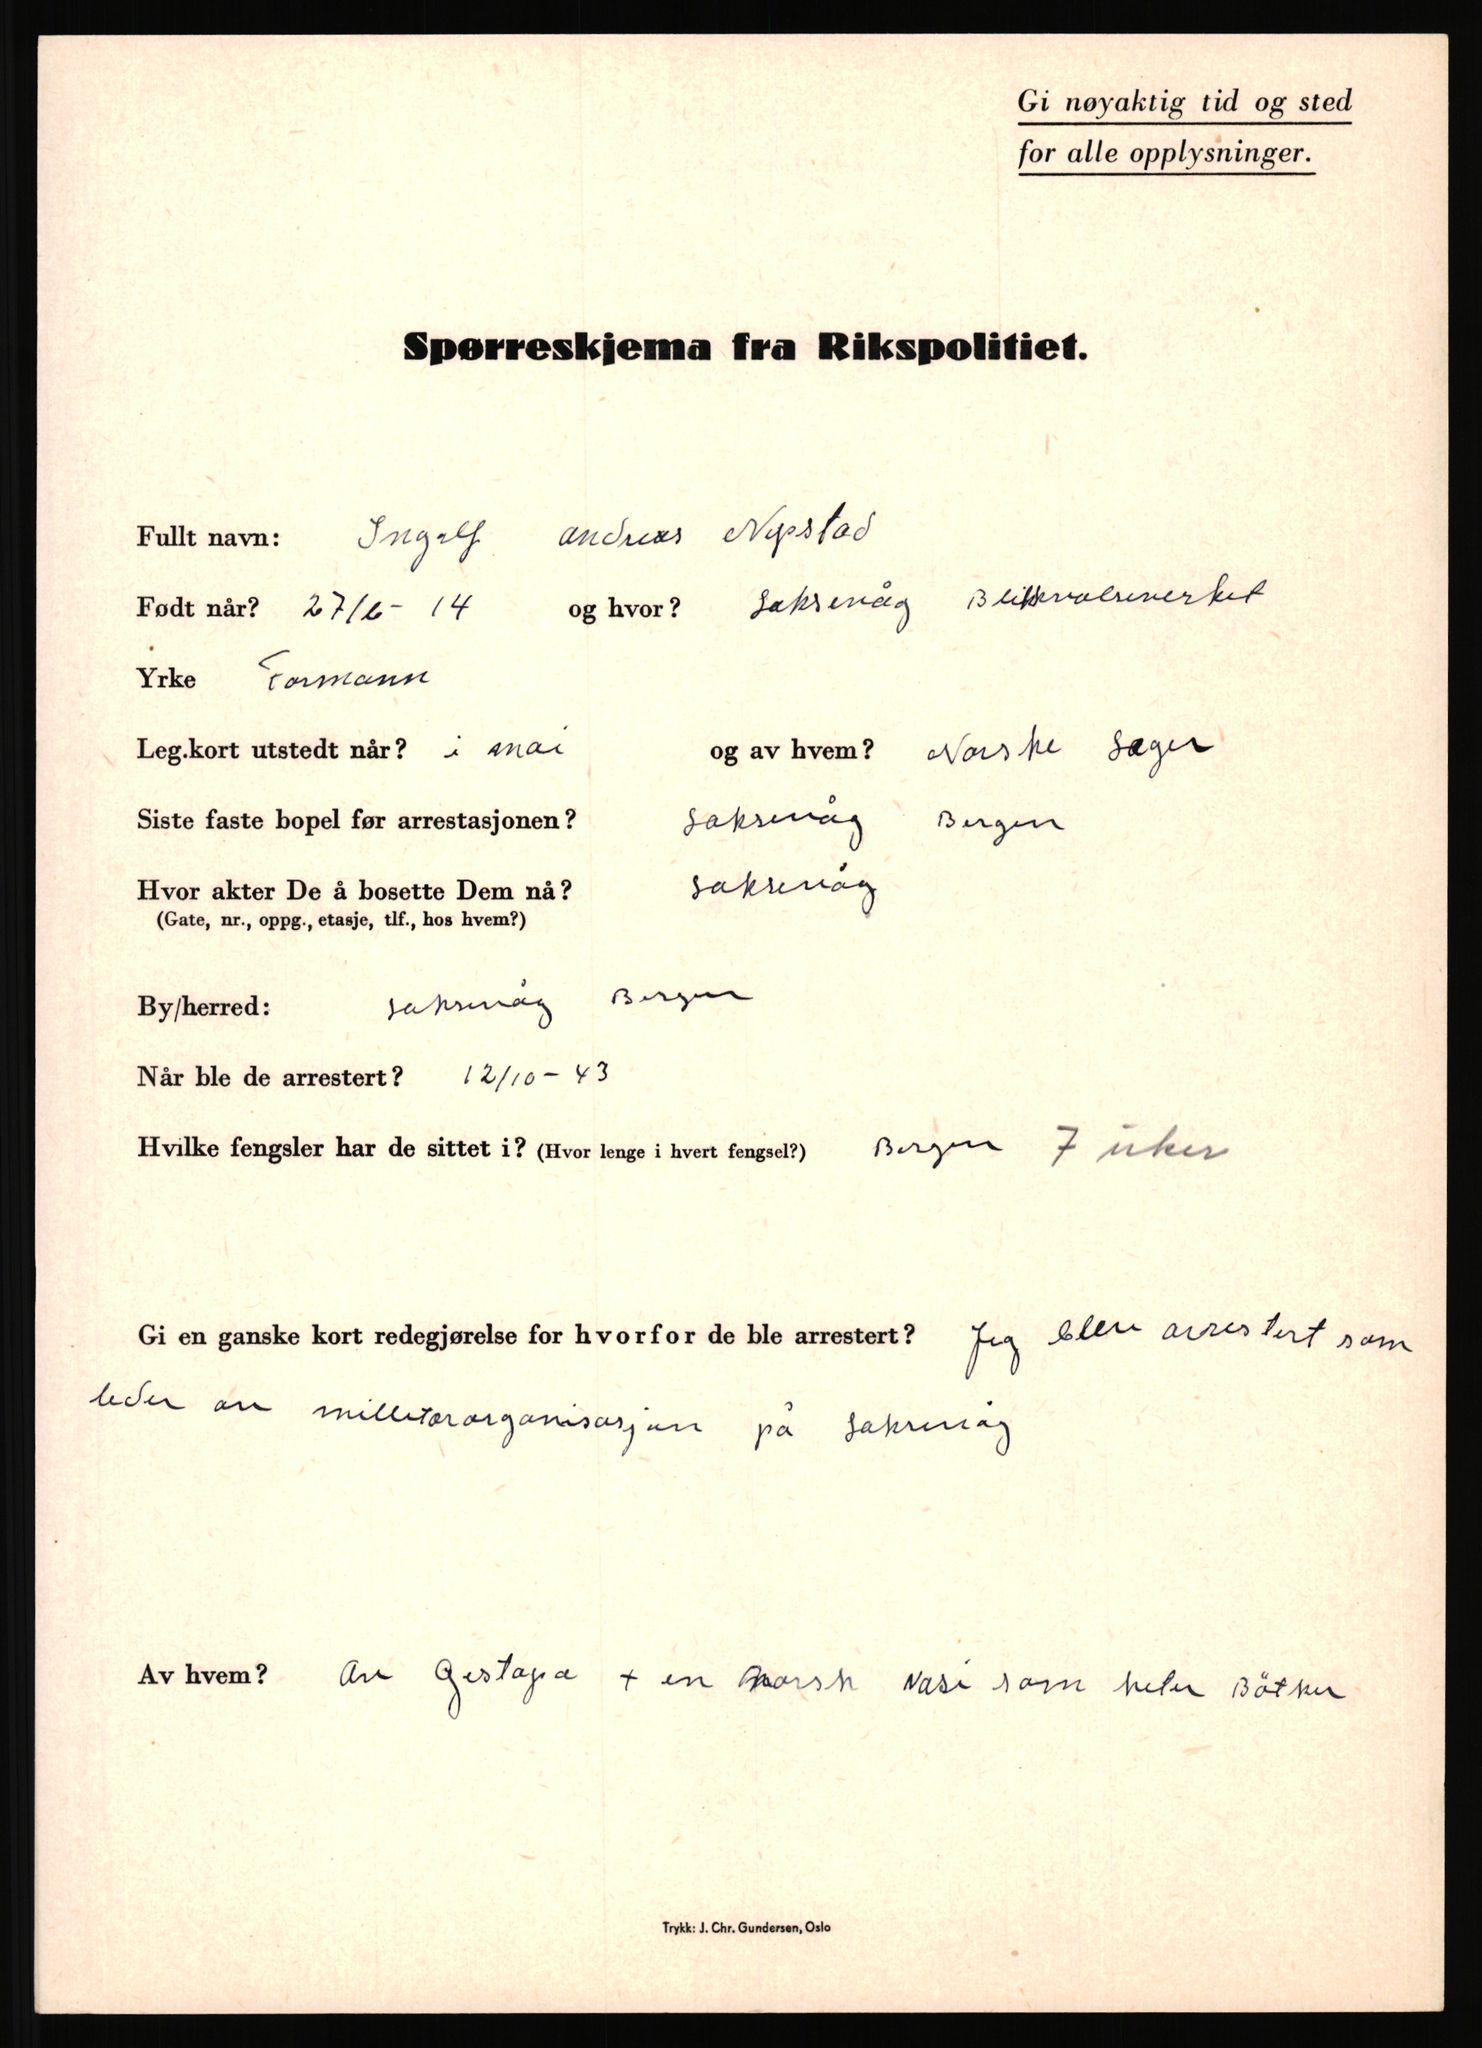 Gi nøyaktig tid og sted
for alle opplysninger.
Spørreskjema fra Rikspolitiet.
Fullt navn: Ingolf Andreas Nypstad
Født når? 27/6 - 14 og hvor? Laksevåg Blikkvalseverket
Yrke Formann
Leg.kort utstedt når? i mai og av hvem? Norske Lager
Siste faste bopel før arrestasjonen? Laksevåg Bergen
Hvor akter De å bosette Dem nå? Laksevåg
(Gate, nr., oppg., etasje, tlf., hos hvem?)
By/herred: Laksevåg Bergen
Når ble de arrestert? 12/10 - 43
Hvilke fengsler har de sittet i? (Hvor lenge i hvert fengsel?) Bergen 7 uker
Gi en ganske kort redegjørelse for hvorfor de ble arrestert? Jeg blev arrestert som
leder av milletærorganisasjon på Laksevåg
Av hvem? Av Gestapo + en norsk Nasi som heter Bötker
Trykk: J. Chr. Gundersen, Oslo